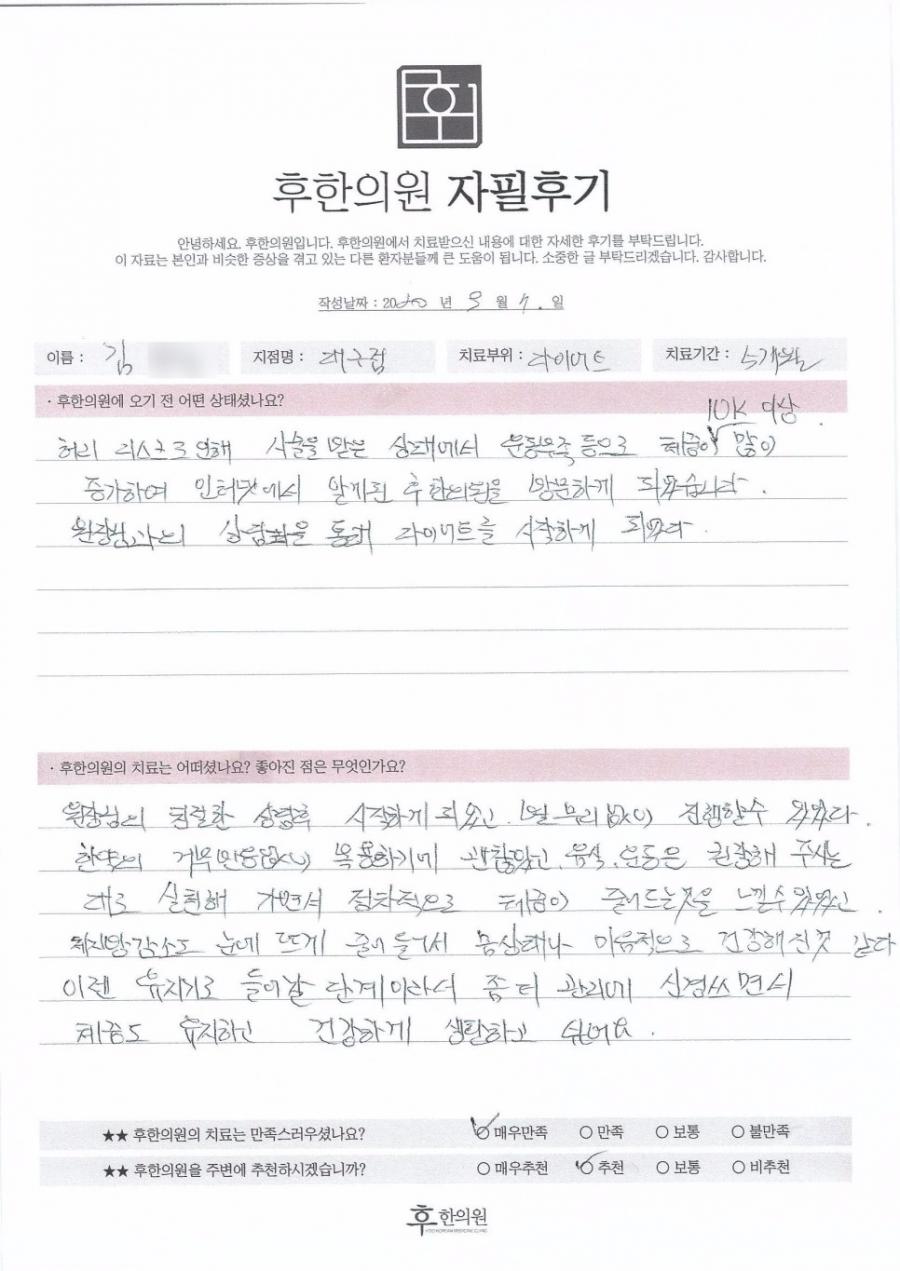 후한의원 자필후기
안녕하세요. 후한의원입니다. 후한의원에서 치료받으신 내용에 대한 자세한 후기를 부탁드립니다.
이 자료는 본인과 비슷한 증상을 겪고 있는 다른 환자분들께 큰 도움이 됩니다. 소중한 글 부탁드리겠습니다. 감사합니다.
작성날짜 : 2020 년 9 월 7. 일
이름 : 김 지점명 : 대구점 치료부위 : 다이어트 치료기간 : 5개월
· 후한의원에 오기 전 어떤 상태셨나요?
10K 이상
허리 디스크로 인해 시술을 받은 상태에서 운동부족 등으로 체중이 많이
증가하여 인터넷에서 알게된 후한의원을 방문하게 되었습니다.
원장님과의 상담을 통해 다이어트를 시작하게 되었다.
· 후한의원의 치료는 어떠셨나요? 좋아진 점은 무엇인가요?
원장님의 친절한 상담후 시작하게 되었고, 별 무리없이 진행할수 있었다.
한약의 거부반응없이 복용하기에 괜찮았고, 음식, 운동은 권장해 주시는
대로 실천해 가면서 점차적으로 체중이 줄어드는것을 느낄수 있었고.
체지방감소도 눈에 뜨게 줄어들어서 몸상태나 마음적으로 건강해진것 같다
이젠 유지기로 들어갈 단계이라서 좀 더 관리에 신경쓰면서
체중도 유지하고 건강하게 생활하고 싶어요.
★★ 후한의원의 치료는 만족스러우셨나요? 매우만족 만족 보통 불만족
★★ 후한의원을 주변에 추천하시겠습니까? 매우추천 추천 보통 비추천
후한의원